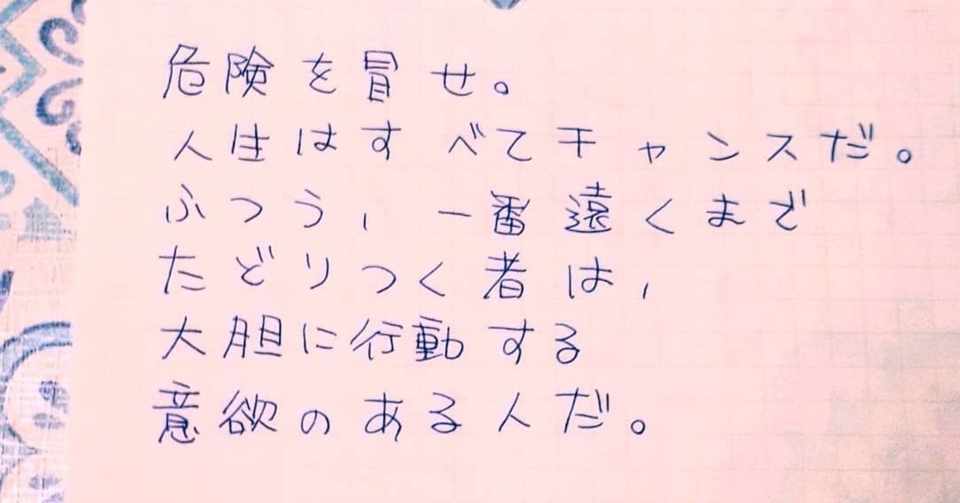 危険を冒せ。
人生はすべてチャンスだ。
ふつう，一番遠くまで
たどりつく者は，
大胆に行動する
意欲のある人だ。